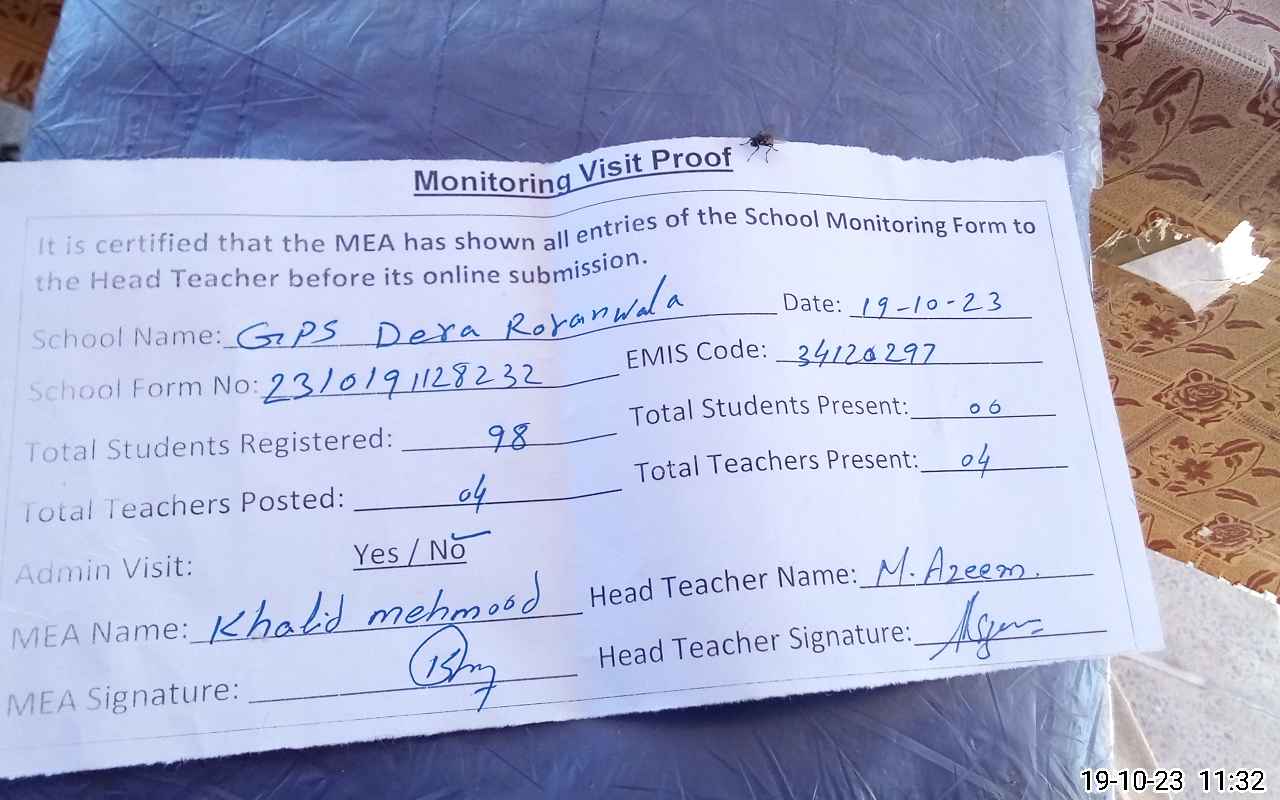 Monitoring Visit Proof
It is certified that the MEA has shown all entries of the School Monitoring Form to
the Head Teacher before its online submission.
School Name: GPS Dera Roranwala Date: 19-10-23
School Form No: 2310191128232 EMIS Code: 34120297
Total Students Registered: 98 Total Students Present: 06
Total Teachers Posted: 04 Total Teachers Present: 04
Admin Visit: Yes / No
MEA Name: Khalid mehmood Head Teacher Name: M. Azeem.
MEA Signature: Head Teacher Signature:
19-10-23 11:32